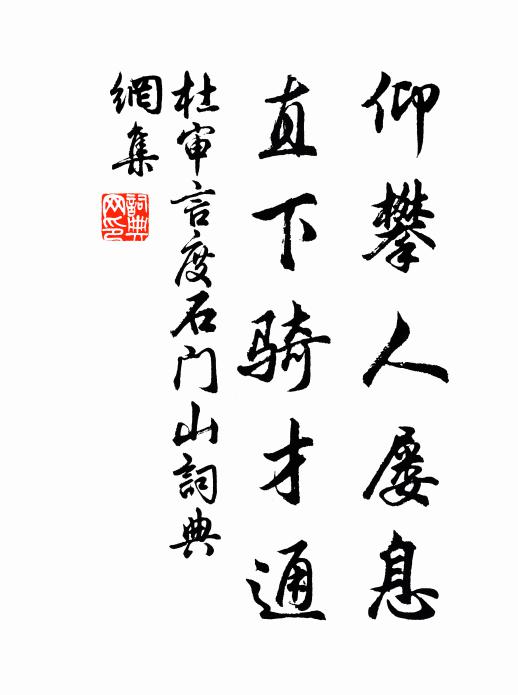 仰攀人屡息
直下骑才通
杜审言度石门山詞典
網集
詞典
网印